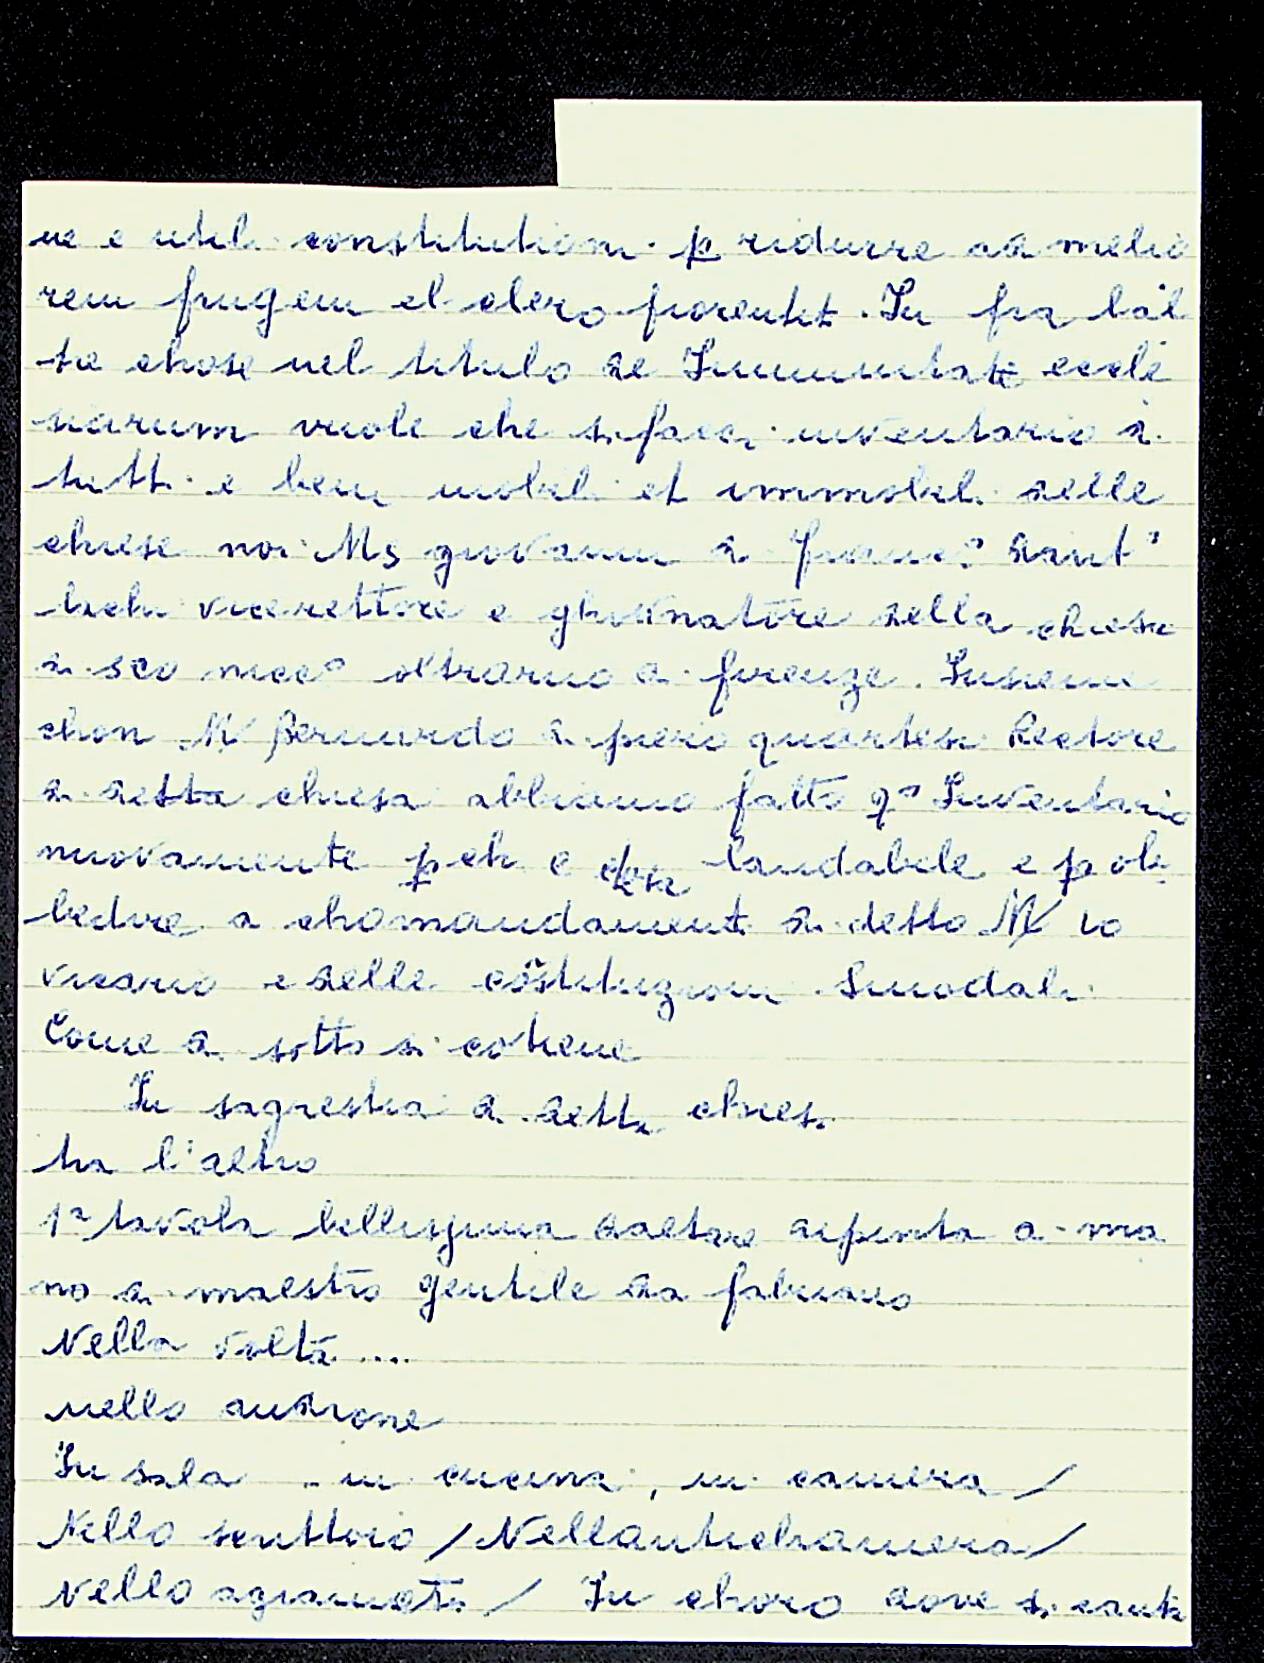 ne e utili constitutioni p ridurre ad melio
rem frugem el clero fiorentit. In fra l'al
tre chose nel titulo de Immunitate eccle
siarum vuole che si facci inventario di
tutti e beni mobili et immobili delle
chiese noi Ms giovanni di franc° dant°
lachi vicerettore e ghuvnatore della chiesa
di sco nicc° oltrarno di firenze. Insieme
chon M Bernardo di piero quartesi Rectore
di detta chiesa abbiamo fatto q° Inventario
nuovamente p ch e chosa laudabile e p ob
bedire a chomandamenti di detto M lo
vicario e delle costituzioni Sinodali
Come di sotto si cotiene
In sagrestia di detta chiesa
tra l'altro
1a tavola bellissima daltare dipinta di ma
no di maestro gentile da fabriano
Nella volta ....
nello androne
In sala .. in cucina, in camera /
Nello scrittoio / Nellantichamera /
Nello agiameto / In choro dove si canta